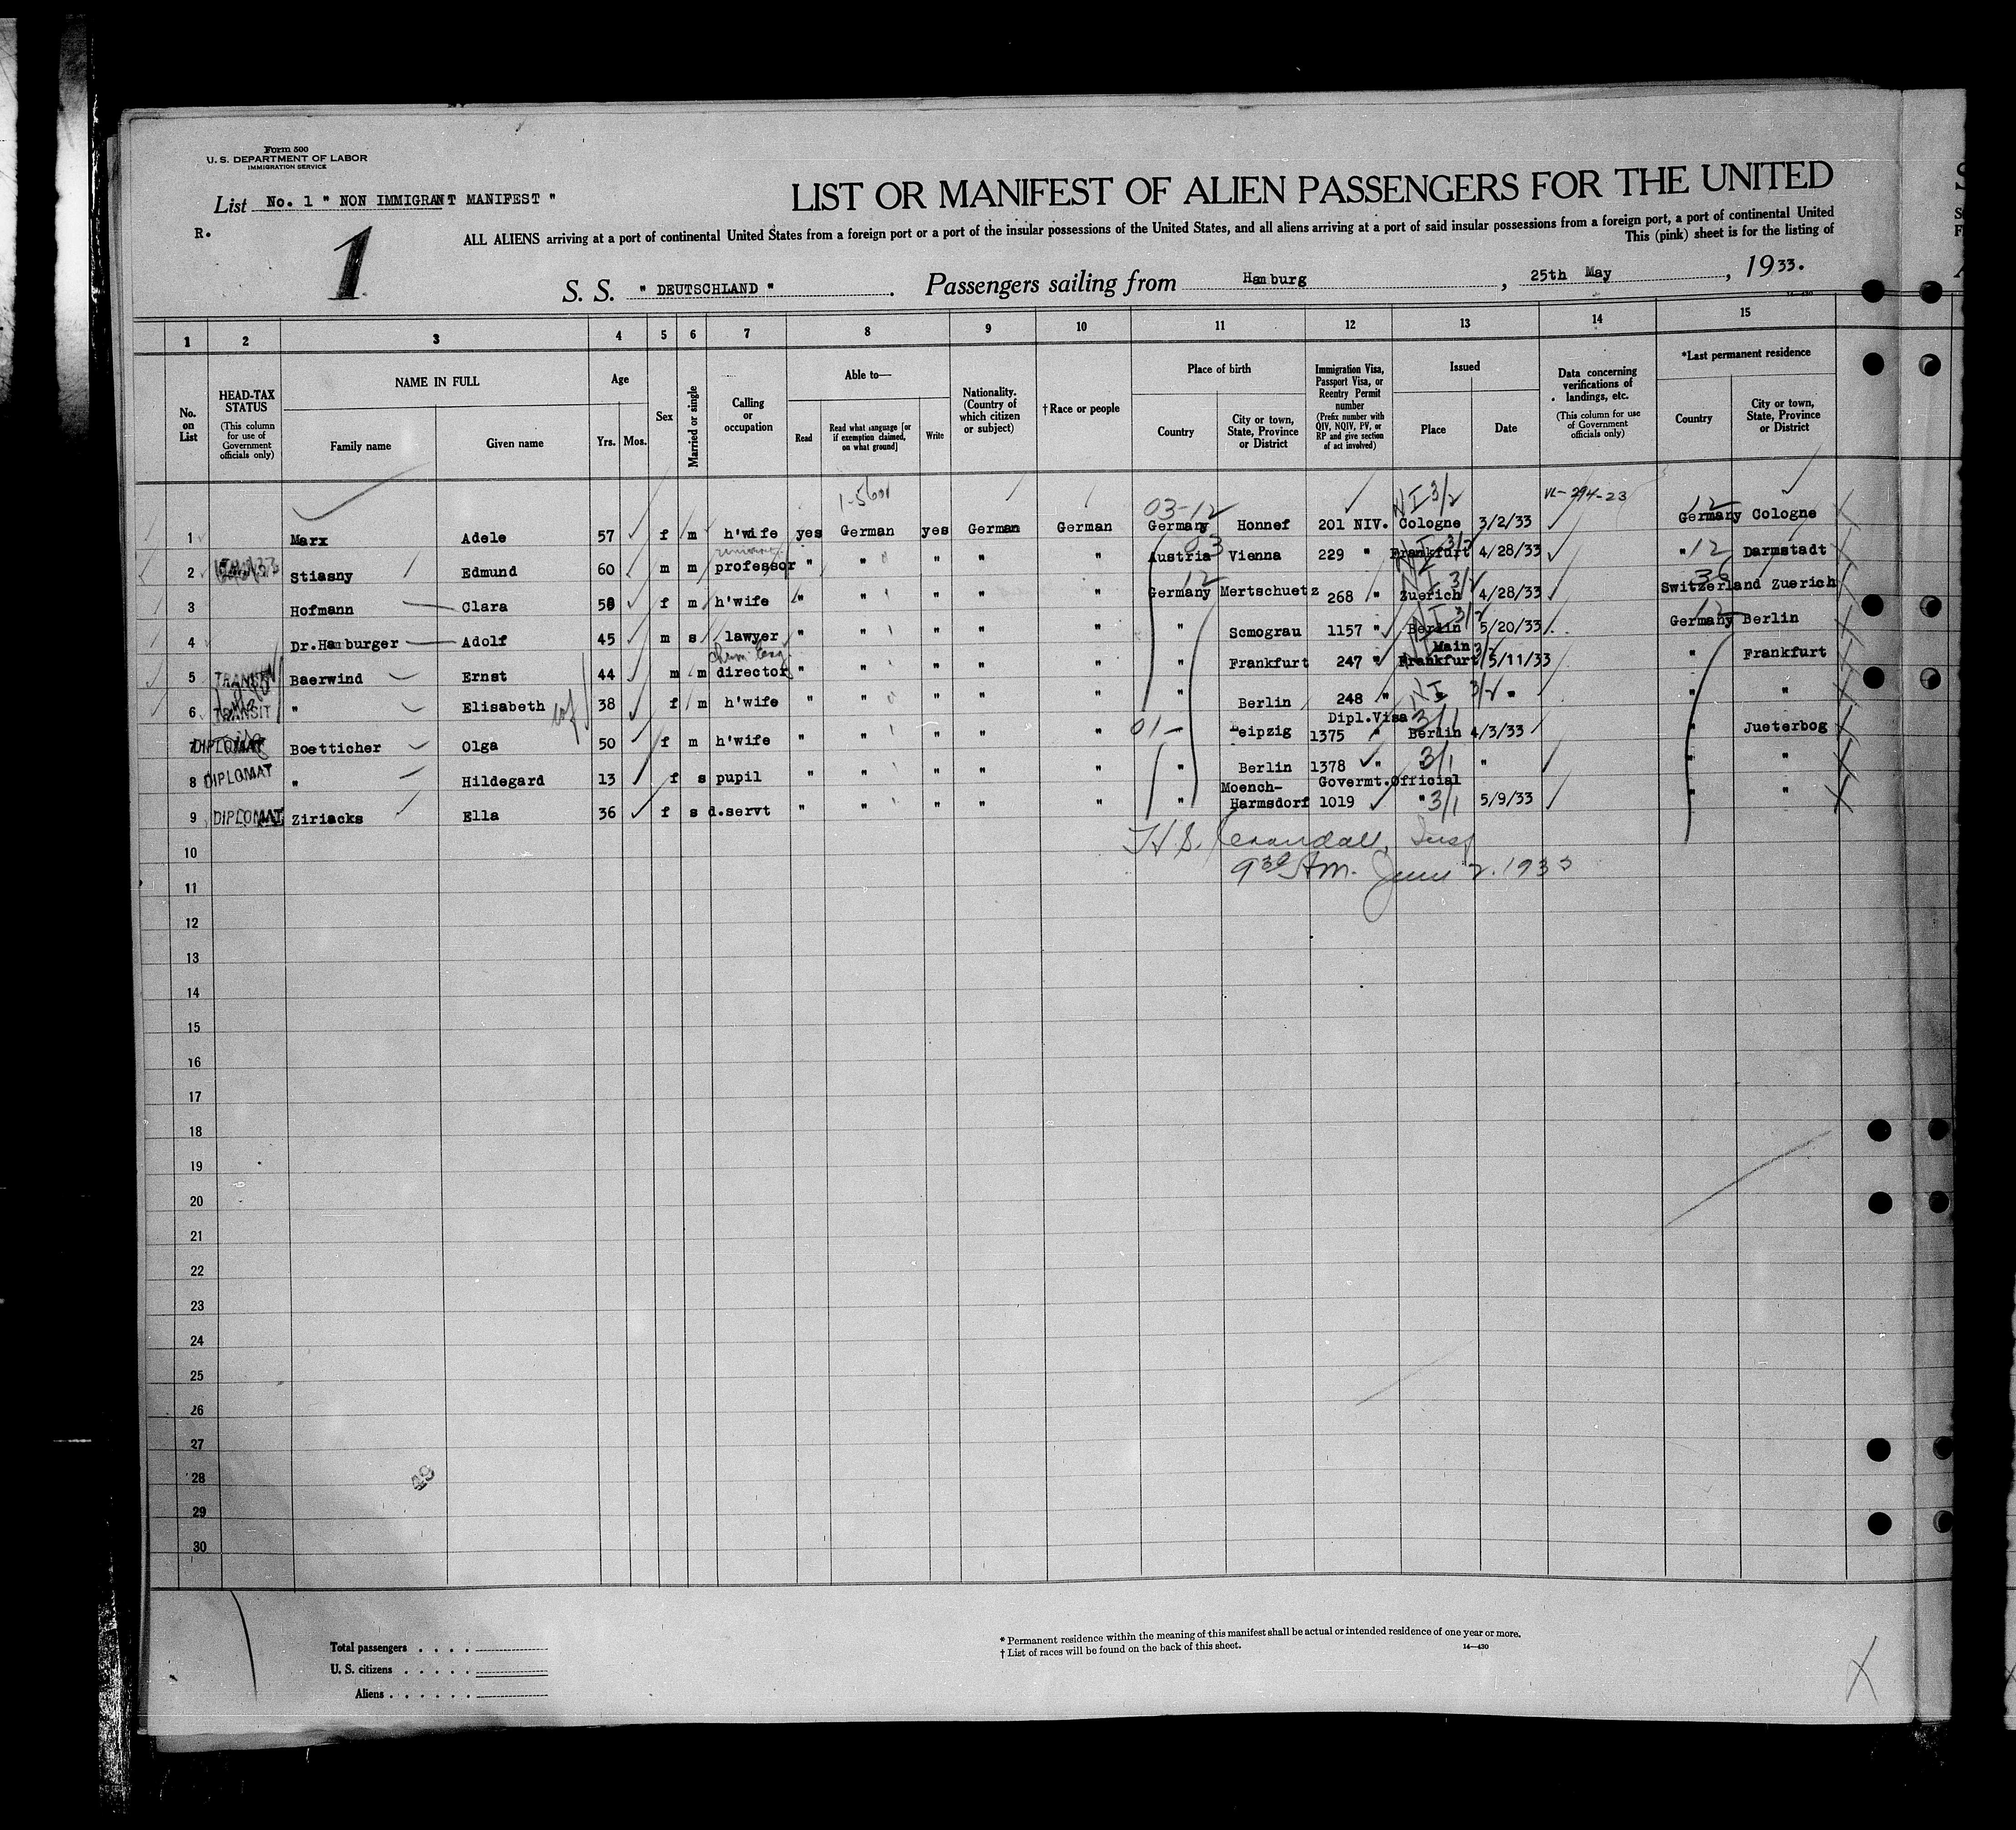 Form 500
U. S. DEPARTMENT OF LABOR
IMMIGRATION SERVICE
List No. 1 " NON IMMIGRANT MANIFEST "
R.
1
LIST OR MANIFEST OF ALIEN PASSENGERS FOR THE UNITED
ALL ALIENS arriving at a port of continental United States from a foreign port or a port of the insular possessions of the United States, and all aliens arriving at a port of said insular possessions from a foreign port, a port of continental United
This (pink) sheet is for the listing of
S. S. " DEUTSCHLAND " . Passengers sailing from Hamburg , 25th May , 1933.
1 2 3 4 5 6 7 8 9 10 11 12 13 14 15
No. on List
HEAD-TAX STATUS (This column for use of Government officials only)
NAME IN FULL
Family name
Given name
Age
Yrs. Mos.
Sex
Married or single
Calling or occupation
Able to—
Read
Read what language [or if exemption claimed, on what ground]
Write
Nationality. (Country of which citizen or subject)
†Race or people
Place of birth
Country
City or town, State, Province or District
Immigration Visa, Passport Visa, or Reentry Permit number (Prefix number with QIV, NQIV, PV, or RP and give section of act involved)
Issued
Place
Date
Data concerning verifications of landings, etc. (This column for use of Government officials only)
*Last permanent residence
Country
City or town, State, Province or District
03-12 NI 3/2 VL-294-23 12
1 Marx Adele 57 f m h'wife yes German yes German German Germany Honnef 201 NIV. Cologne 3/2/33 Germany Cologne
03 NI 3/2 12
2 Stiasny Edmund 60 m m professor " " " " " Austria Vienna 229 " Frankfurt 4/28/33 " Darmstadt
12 NI 3/2 36
3 Hofmann Clara 58 f m h'wife " " " " " Germany Mertschuetz 268 " Zuerich 4/28/33 Switzerland Zuerich
NI 3/2 12
4 Dr.Hamburger Adolf 45 m s lawyer " " " " " " Somograu 1157 " Berlin 5/20/33 Germany Berlin
Chem. Eng. Main
5 TRANSIT Baerwind Ernst 44 m m director " " " " " " Frankfurt 247 " Frankfurt 5/11/33 " Frankfurt
6 TRANSIT " Elisabeth wf 38 f m h'wife " " " " " " Berlin 248 " NI 3/2 " " "
01- Dipl.Visa 3/1
7 DIPLOMAT Boetticher Olga 50 f m h'wife " " " " " Leipzig 1375 " Berlin 4/3/33 " Jueterbog
8 DIPLOMAT " Hildegard 13 f s pupil " " " " " " Berlin 1378 " 3/1 " " "
Moench- Govermt.Official
9 DIPLOMAT Ziriacks Ella 36 f s d.servt " " " " " " Harmsdorf 1019 " 3/1 5/9/33 " "
H.S. Crandall, Insp
9 30 AM. June 2. 1933
10
11
12
13
14
15
16
17
18
19
20
21
22
23
24
25
26
27
28
29
30
49
Total passengers . . . .
U. S. citizens . . . . .
Aliens . . . . . .
* Permanent residence within the meaning of this manifest shall be actual or intended residence of one year or more.
† List of races will be found on the back of this sheet.
14—430